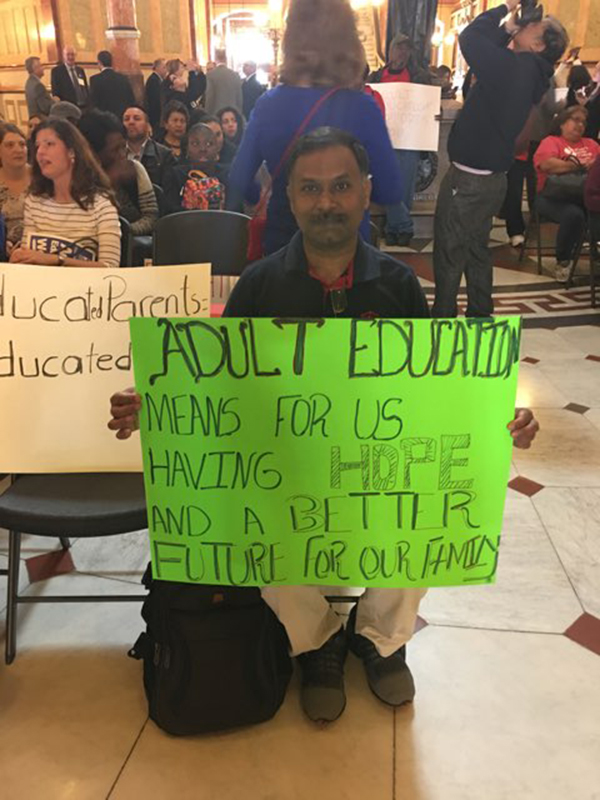 ucated Parents=
ducated
ADULT EDUCATION
MEANS FOR US
HAVING HOPE
AND A BETTER
FUTURE FOR OUR FAMILY